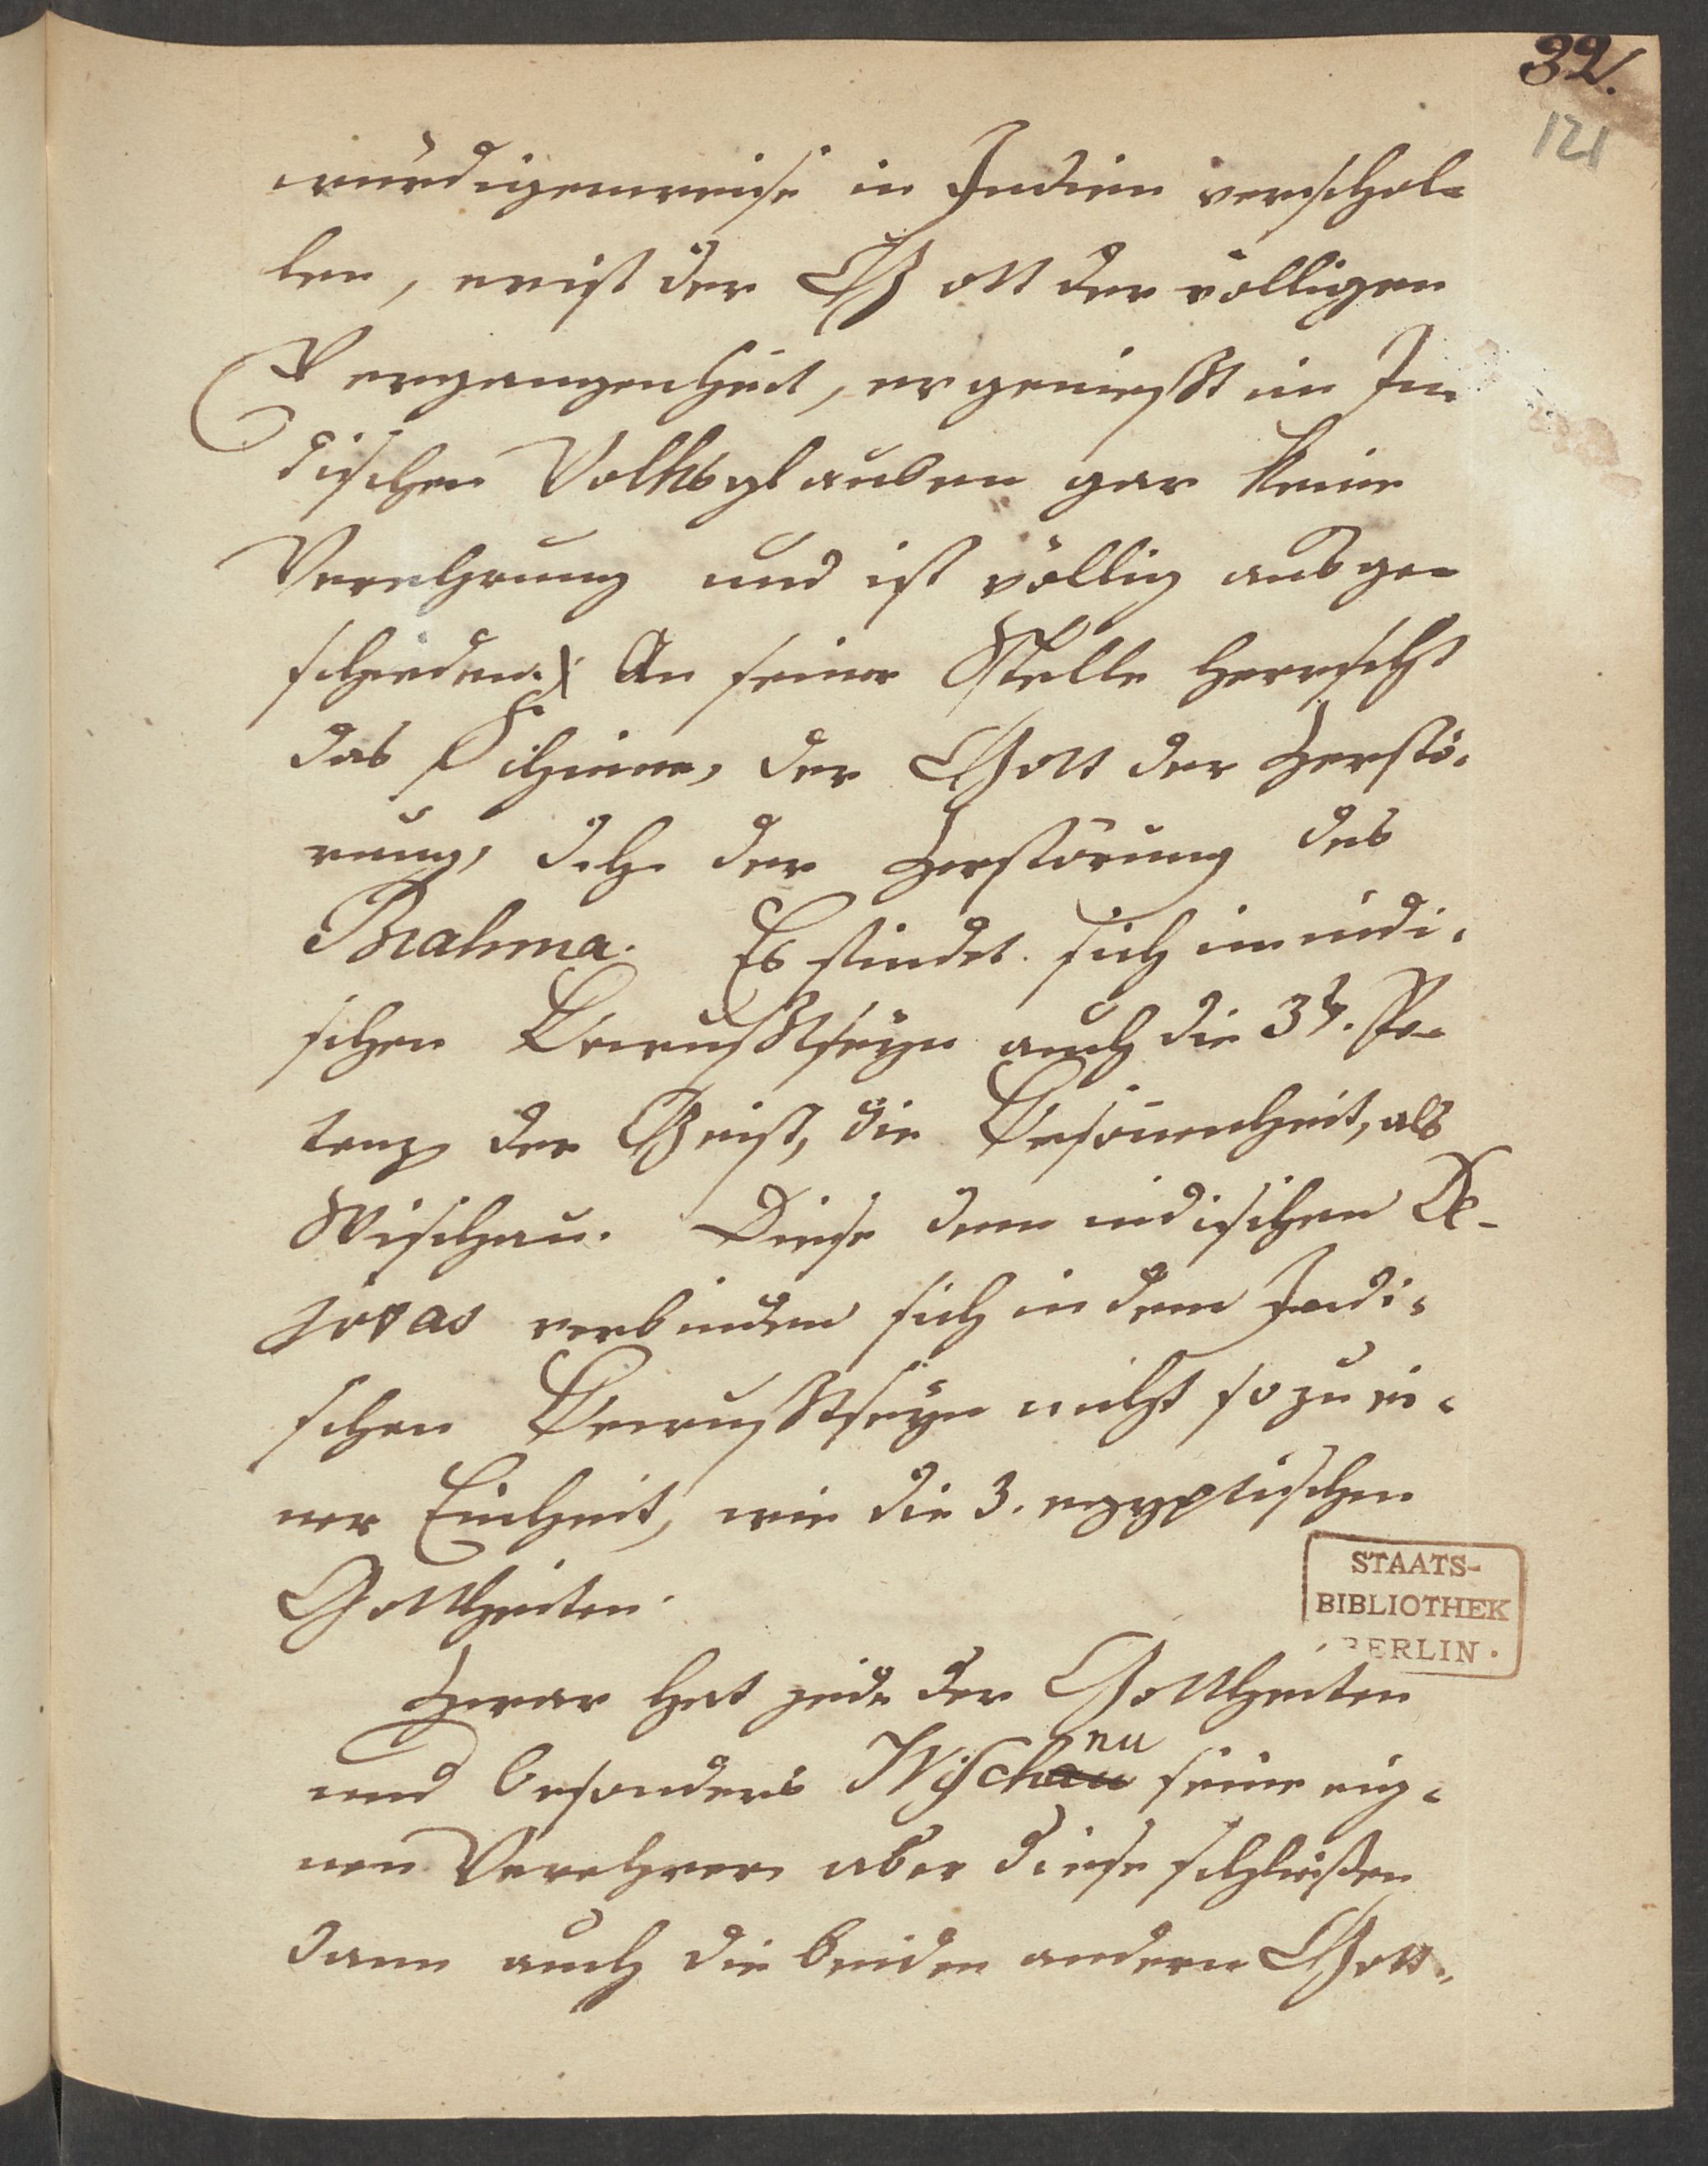 32.
121
würdigerweise in Indien verschol-
len, er ist der Gott der völligen
Vergangenheit, er genießt im In-
dischen Volksglauben gar keine
Verehrung und ist völlig ausge-
schieden. An seiner Stelle herrscht
das Schiwa, der Gott der Zerstö-
rung, d. h. der Zerstörung des
Brahma. Es findet sich im indi-
schen Bewußtseyn auch die 3te. Po-
tenz der Geist, die Besonnenheit, als
Wischnu. Diese drei indischen De-
jotas verbinden sich in dem Indi-
schen Bewußtseyn nicht so zu ei-
ner Einheit, wie die 3. egyptischen
Gottheiten.
STAATS-
BIBLIOTHEK
BERLIN
Zwar hat jede der Gottheiten
nu
und besonders Wischau seine eig-
nen Verehrer, aber diese schließen
dann auch die beiden andern Gott-